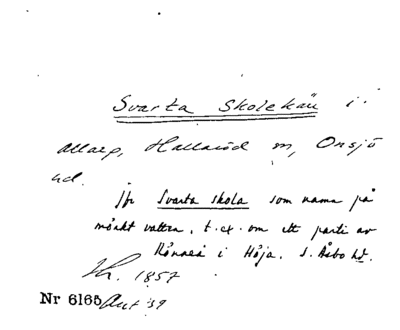 Svarta Skolekäu i
Allarp, Hallaröd m, Onsjö
hd.
jfr Svarta skola som namn på
mörkt vatten, t. ex. om ett parti av
Rönneå i Höja. S. Åsbo hd.
1857
Nr 6165 Ant 39